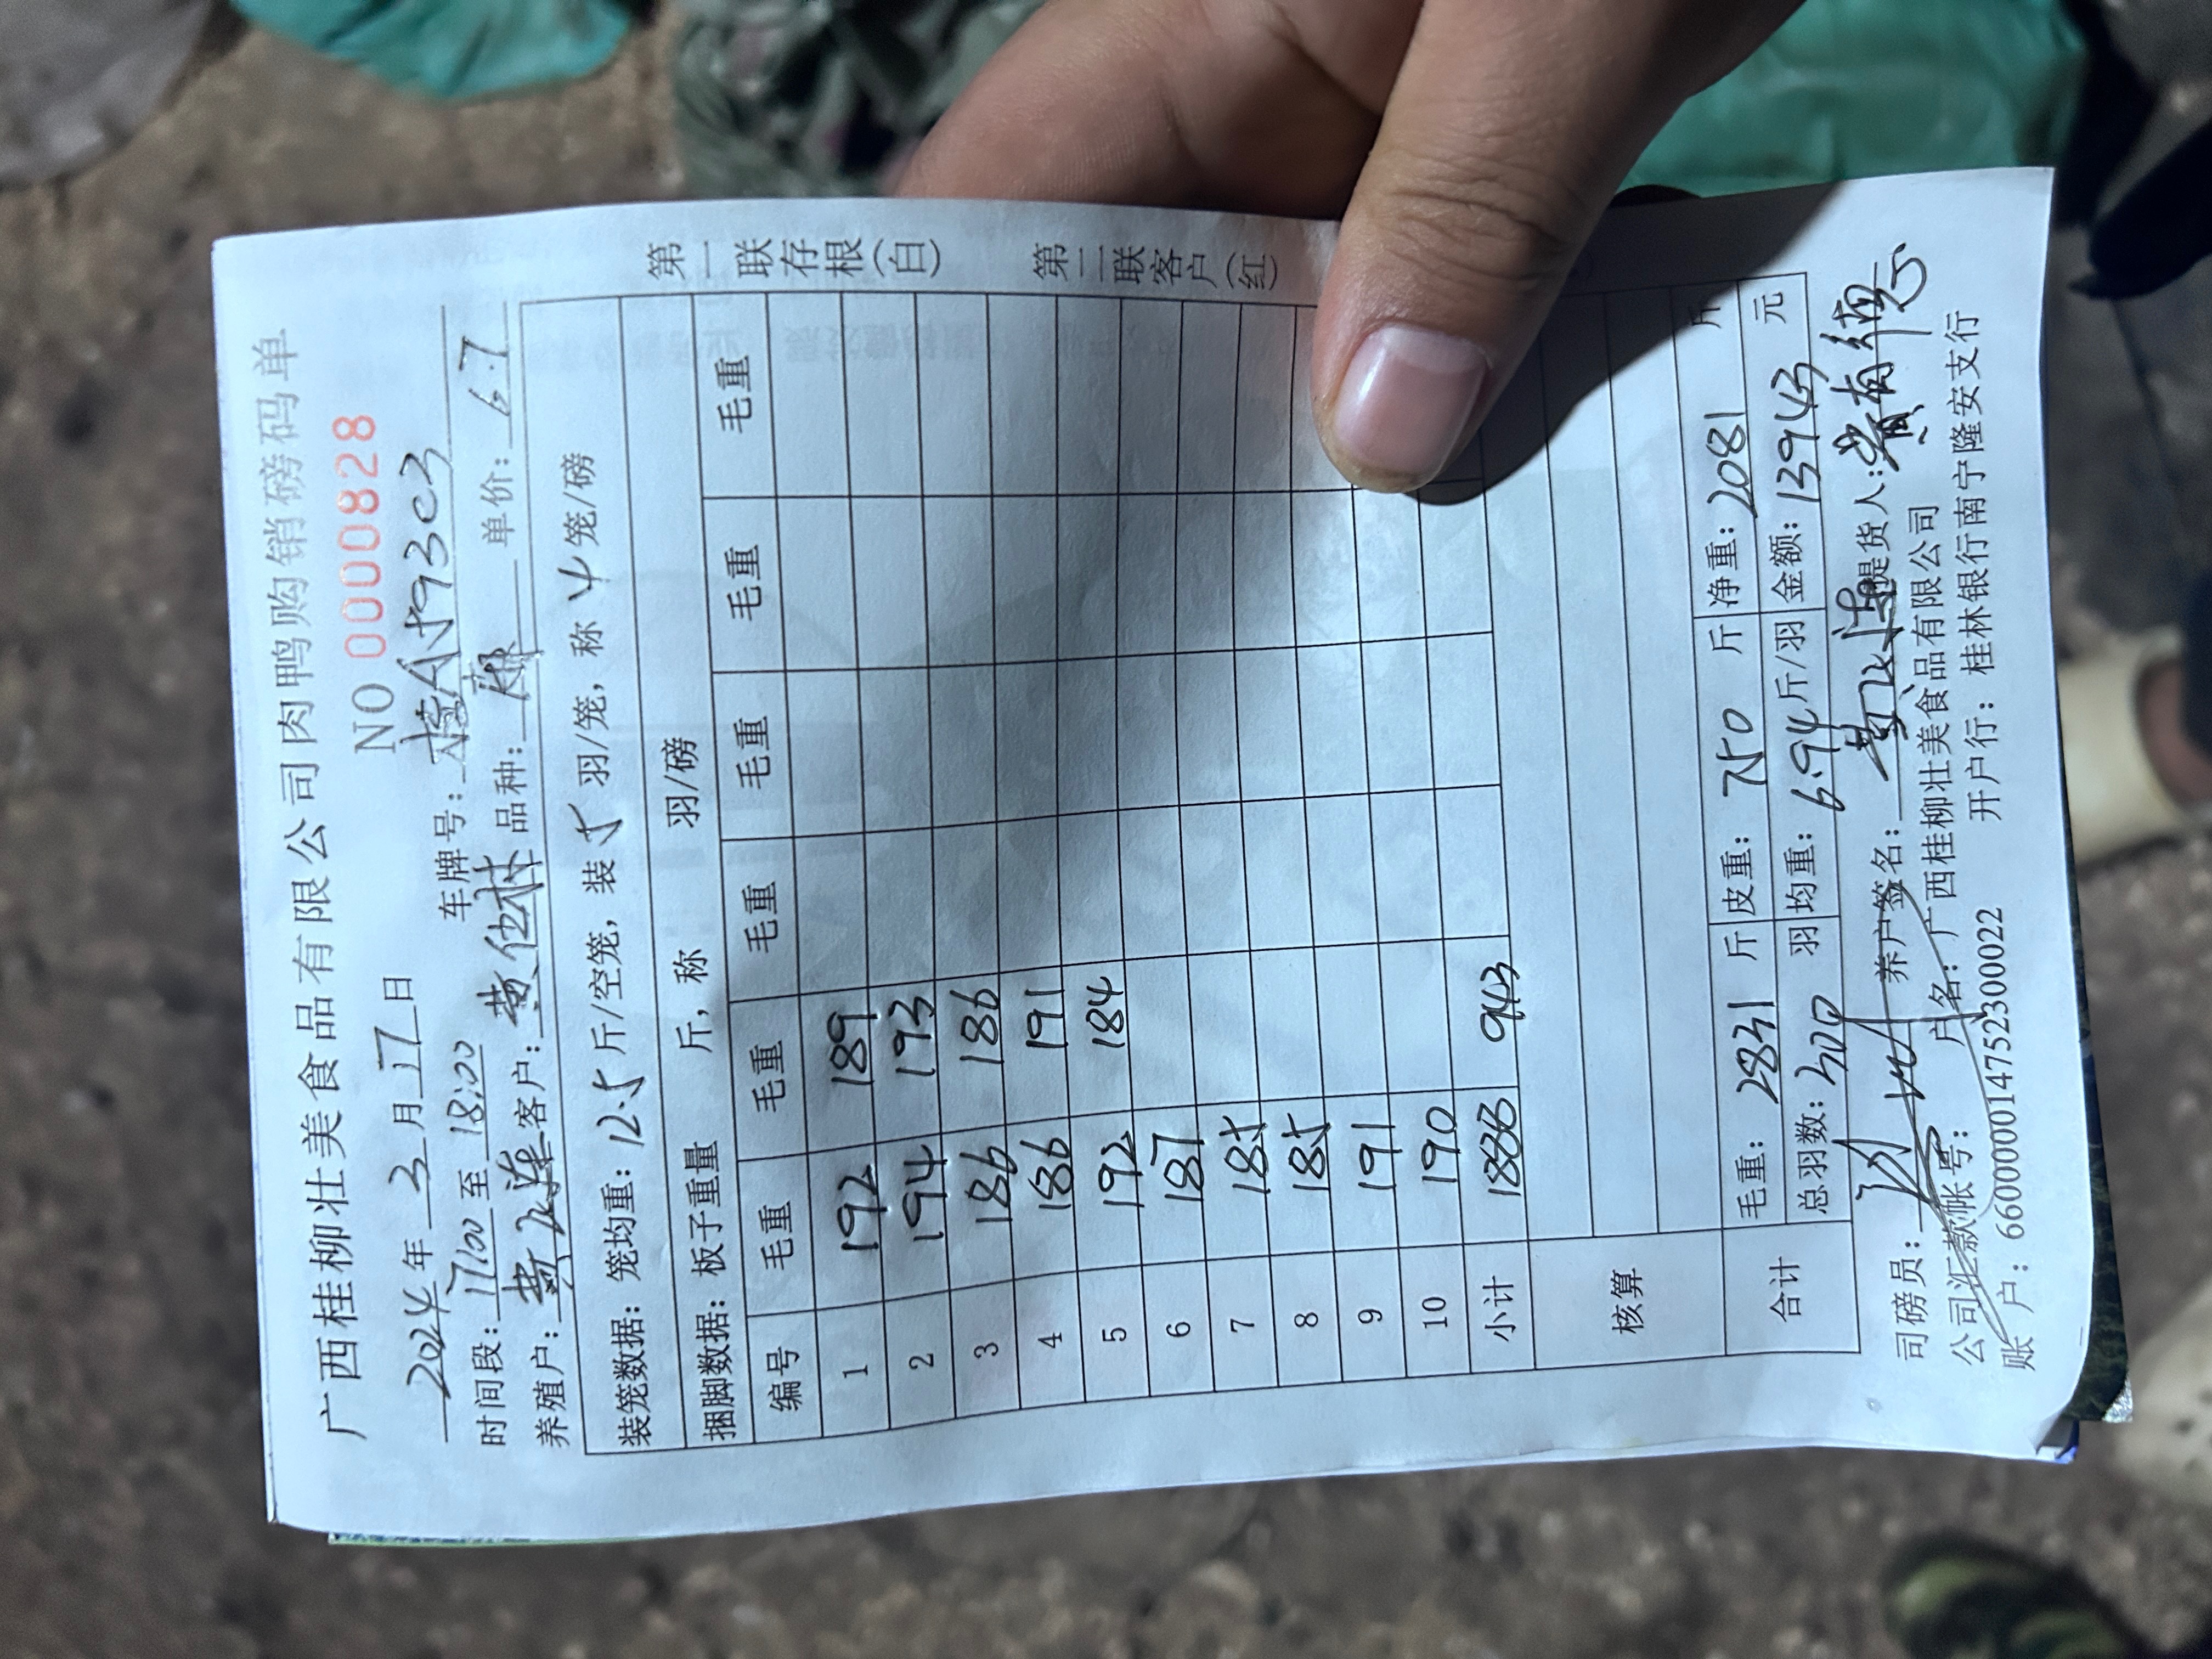 广西桂柳壮美食品有限公司肉鸭购销磅码单
NO 0000828
2024年3月17日 车牌号:桂A593C3
时间段:17:00至18:00 品种:麻 单价:6.7
养殖户:黄 莲 客户:黄
装笼数据:笼均重:12.5斤/空笼,装5羽/笼,称4笼/磅
捆脚数据:板子重量 斤,称 羽/磅
编号 毛重 毛重 毛重 毛重 毛重 毛重
1 192 189
2 194 193
3 186 186
4 186 191
5 192 184
6 187
7 185
8 185
9 191
10 190
小计 1888 943
核算
合计 毛重:2831斤 皮重:750斤 净重:2081斤
总羽数:300羽 均重:6.94斤/羽 金额:13943元
司磅员: 养户签名:黄 莲 提货人:黄
公司汇款帐号: 户名:广西桂柳壮美食品有限公司
账户:660000014752300022 开户行:桂林银行南宁隆安支行
第一联存根(白)
第二联客户(红)